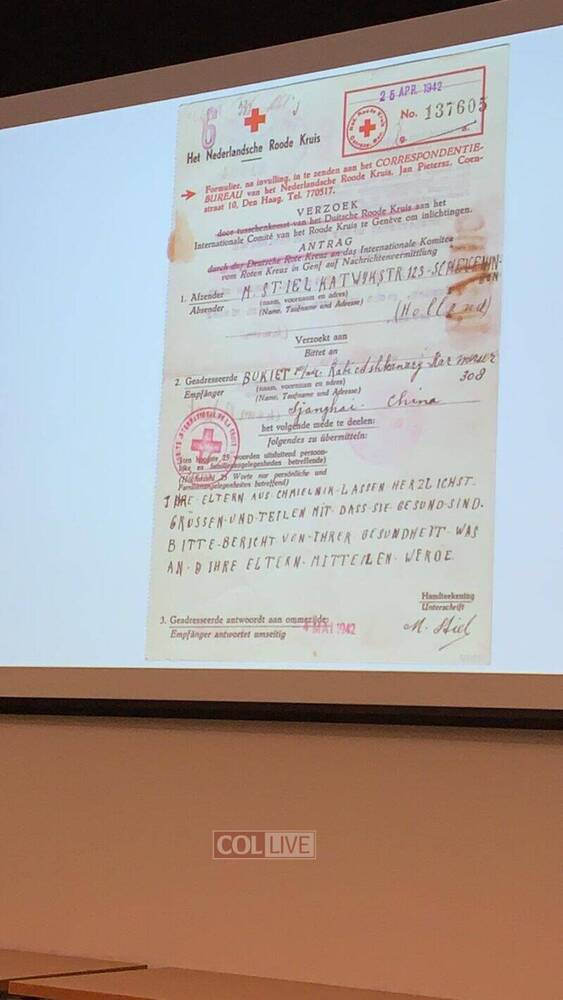 6
25 APR. 1942
No. 137605
Het Nederlandsche Roode Kruis
Formulier, na invulling, in te zenden aan het CORRESPONDENTIE-
BUREAU van het Nederlandsche Roode Kruis, Jan Pietersz. Coen-
straat 10, Den Haag. Tel. 770517.
VERZOEK
door tusschenkomst van het Duitsche Roode Kruis aan het
Internationale Comité van het Roode Kruis te Genève om inlichtingen.
ANTRAG
durch der Deutsche Rote Kreuz an das Internationale Komitee
vom Roten Kreuz in Genf auf Nachrichtenvermittlung
1. Afzender M. STIEL KATWIJKSTR 123 - SCHEVENIN-
GEN
(naam, voornaam en adres)
Absender (Name, Taufname und Adresse) (Holland)
Verzoekt aan
Bittet an
2. Geadresseerde BUKIET
308
(naam, voornaam en adres)
Empfänger (Name, Taufname und Adresse)
Sjanghai. China
het volgende mede te deelen:
Folgendes zu übermitteln:
COMITÉ INTERNATIONAL DE LA CROIX
(ten hoogste 25 woorden uitsluitend persoon-
lijke en familieaangelegenheden betreffende)
(Höchstzahl 25 Worte nur persönliche und
Familienangelegenheiten betreffend)
IHRE ELTERN AUS CHMIELNIK LASSEN HERZLICHST.
GRÜSSEN UND TEILEN MIT DASS SIE GESUND SIND.
BITTE BERICHT VON IHRER GESUNDHEIT WAS
AN IHRE ELTERN MITTEILEN WERDE
Handteekening
Unterschrift
3. Geadresseerde antwoordt aan ommezijde
4 MAI 1942
Empfänger antwortet umseitig
M. Stiel
COL LIVE